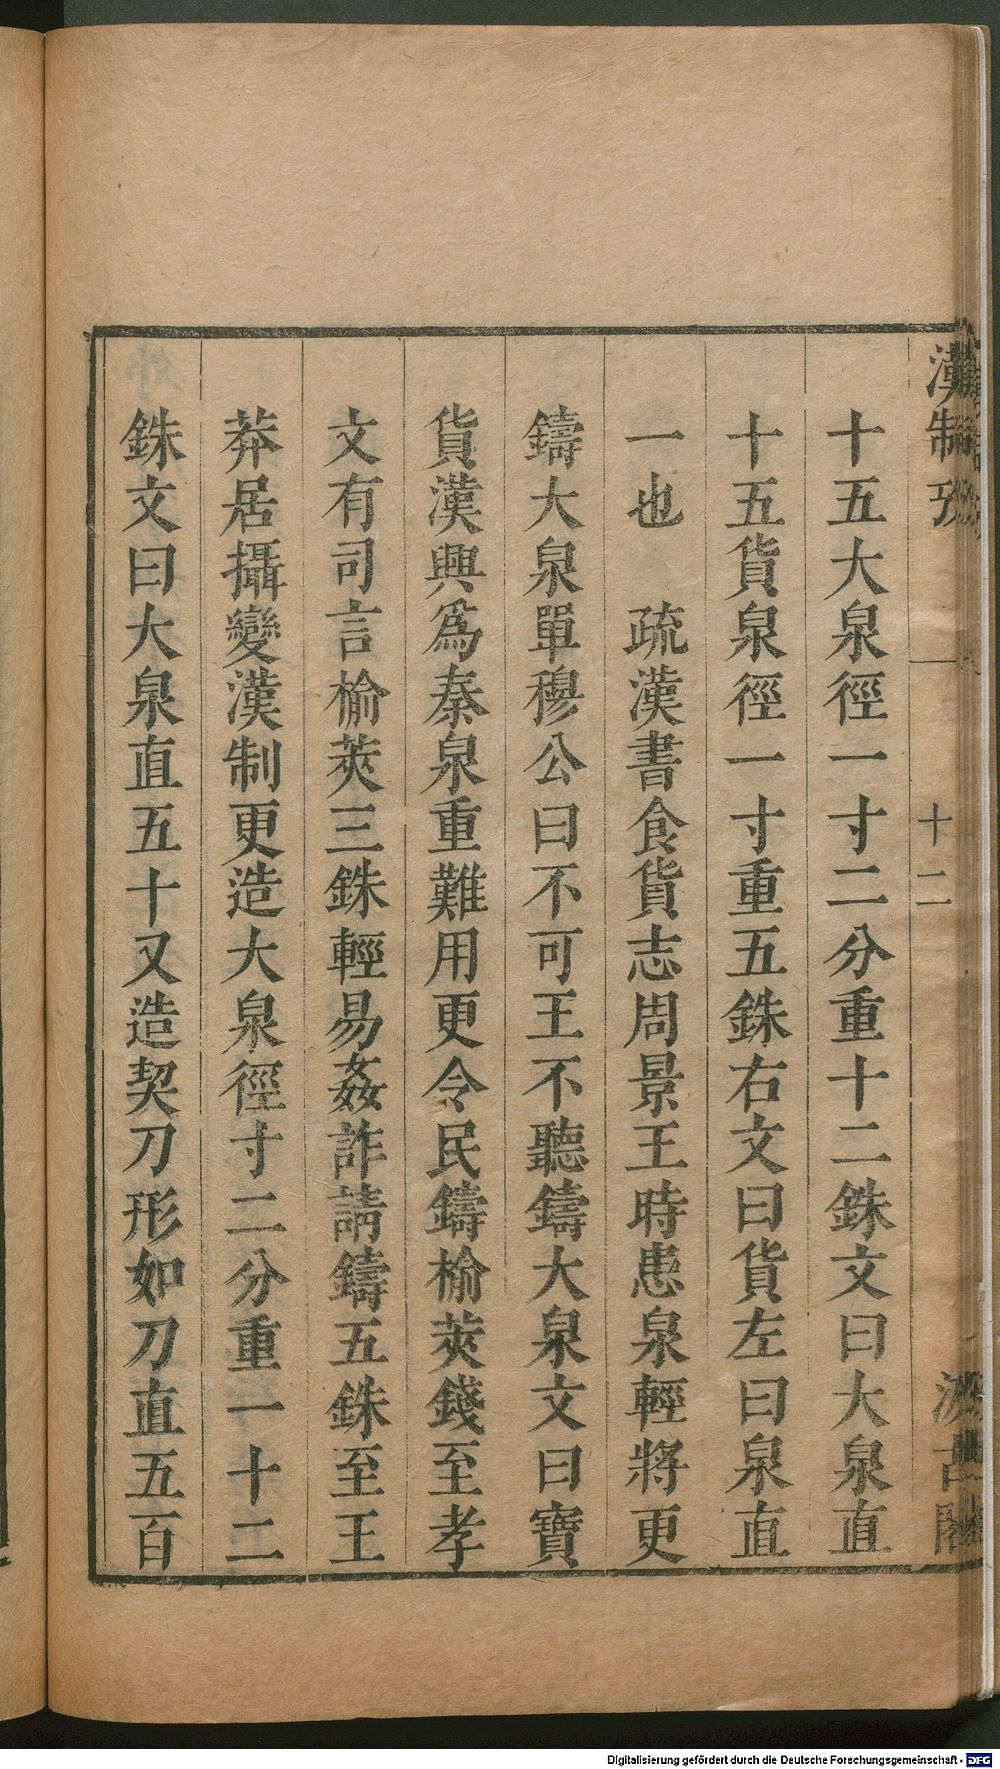 漢制攷
十二
汲古閣
十五大泉徑一寸二分重十二銖文曰大泉直
十五貨泉徑一寸重五銖右文曰貨左曰泉直
一也 疏漢書食貨志周景王時患泉輕將更
鑄大泉單穆公曰不可王不聽鑄大泉文曰寶
貨漢興爲秦泉重難用更令民鑄榆莢錢至孝
文有司言榆莢三銖輕易姦詐請鑄五銖至王
莽居攝變漢制更造大泉徑寸二分重一十二
銖文曰大泉直五十又造契刀刀形如刀直五百
Digitalisierung gefördert durch die Deutsche Forschungsgemeinschaft - DFG